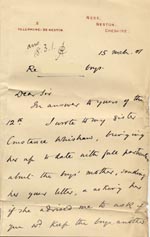 NESS,
NESTON,
CHESHIRE.
15 Mch. 01
Re boys.
Dear Sir
In answer to yours of the
12th I wrote to my sister
Constance Whishaw, bringing
her up to date with full particulars
about the boys' mother, sending
her yours letter, & asking her
if she advised me to ask if
you wd keep the boys another